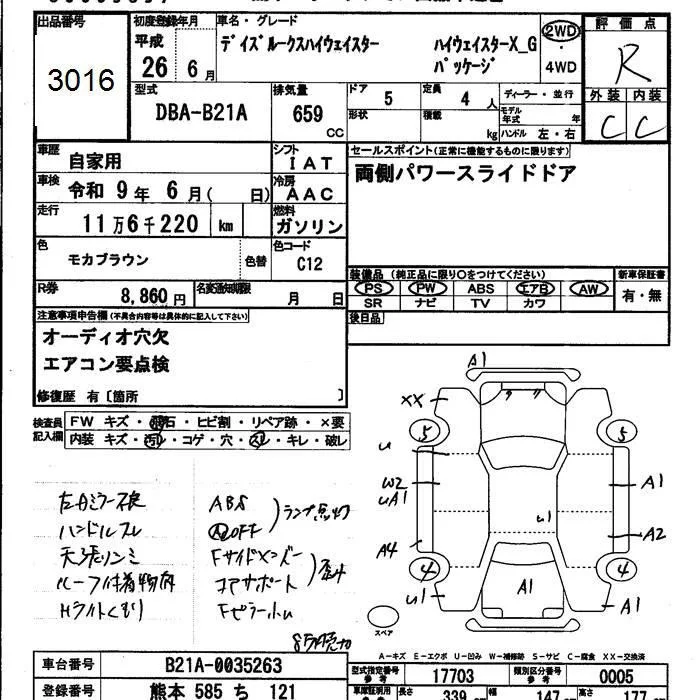 出品番号 3016
初度登録年月 平成 26 6月
車名・グレード
デイズルークスハイウェイスター ハイウェイスターX_G パッケージ
2WD・4WD
評価点 R
外装 内装
C C
型式 DBA-B21A
排気量 659 CC
ドア 5
定員 4人
ディーラー・並行
形状
積載 kg
モデル年式 年
ハンドル 左・右
車歴 自家用
シフト IAT
車検 令和 9年 6月( 日)
冷房 AAC
走行 11万6千220 km
燃料 ガソリン
色 モカブラウン 色替
色コード C12
R券 8,860円
名変通知期限 月 日
セールスポイント(正常に機能するものに限ります)
両側パワースライドドア
装備品 (純正品に限り○をつけてください)
新車保証書
PS PW ABS エアB AW
有・無
SR ナビ TV カワ
後日品
注意事項申告欄(不具合内容等は具体的に記入して下さい)
オーディオ穴欠
エアコン要点検
修復歴 有〔箇所 〕
検査員記入欄
FW キズ・飛石・ヒビ割・リペア跡・×要
内装 キズ・汚レ・コゲ・穴・スレ・キレ・破レ
左ミラー不良
ハンドルスレ
天張シミ
ルーフ付着物有
Hライトくもり
ABS
OFF
ランプ点灯
Fサイドメンバー
コアサポート
歪み
Fピラー
A1
XX
5 5
u
W2
uA1
A1
u1
A4
A2
4 4
u1
A1
A1
スペア
A-キズ E-エクボ U-凹み W-補修跡 S-サビ C-腐食 XX-交換済
車台番号 B21A-0035263
登録番号 熊本 585 ち 121
型式指定番号 参考 17703
類別区分番号 参考 0005
車庫証明用 参考
長さ 339 cm
幅 147 cm
高さ 177 cm